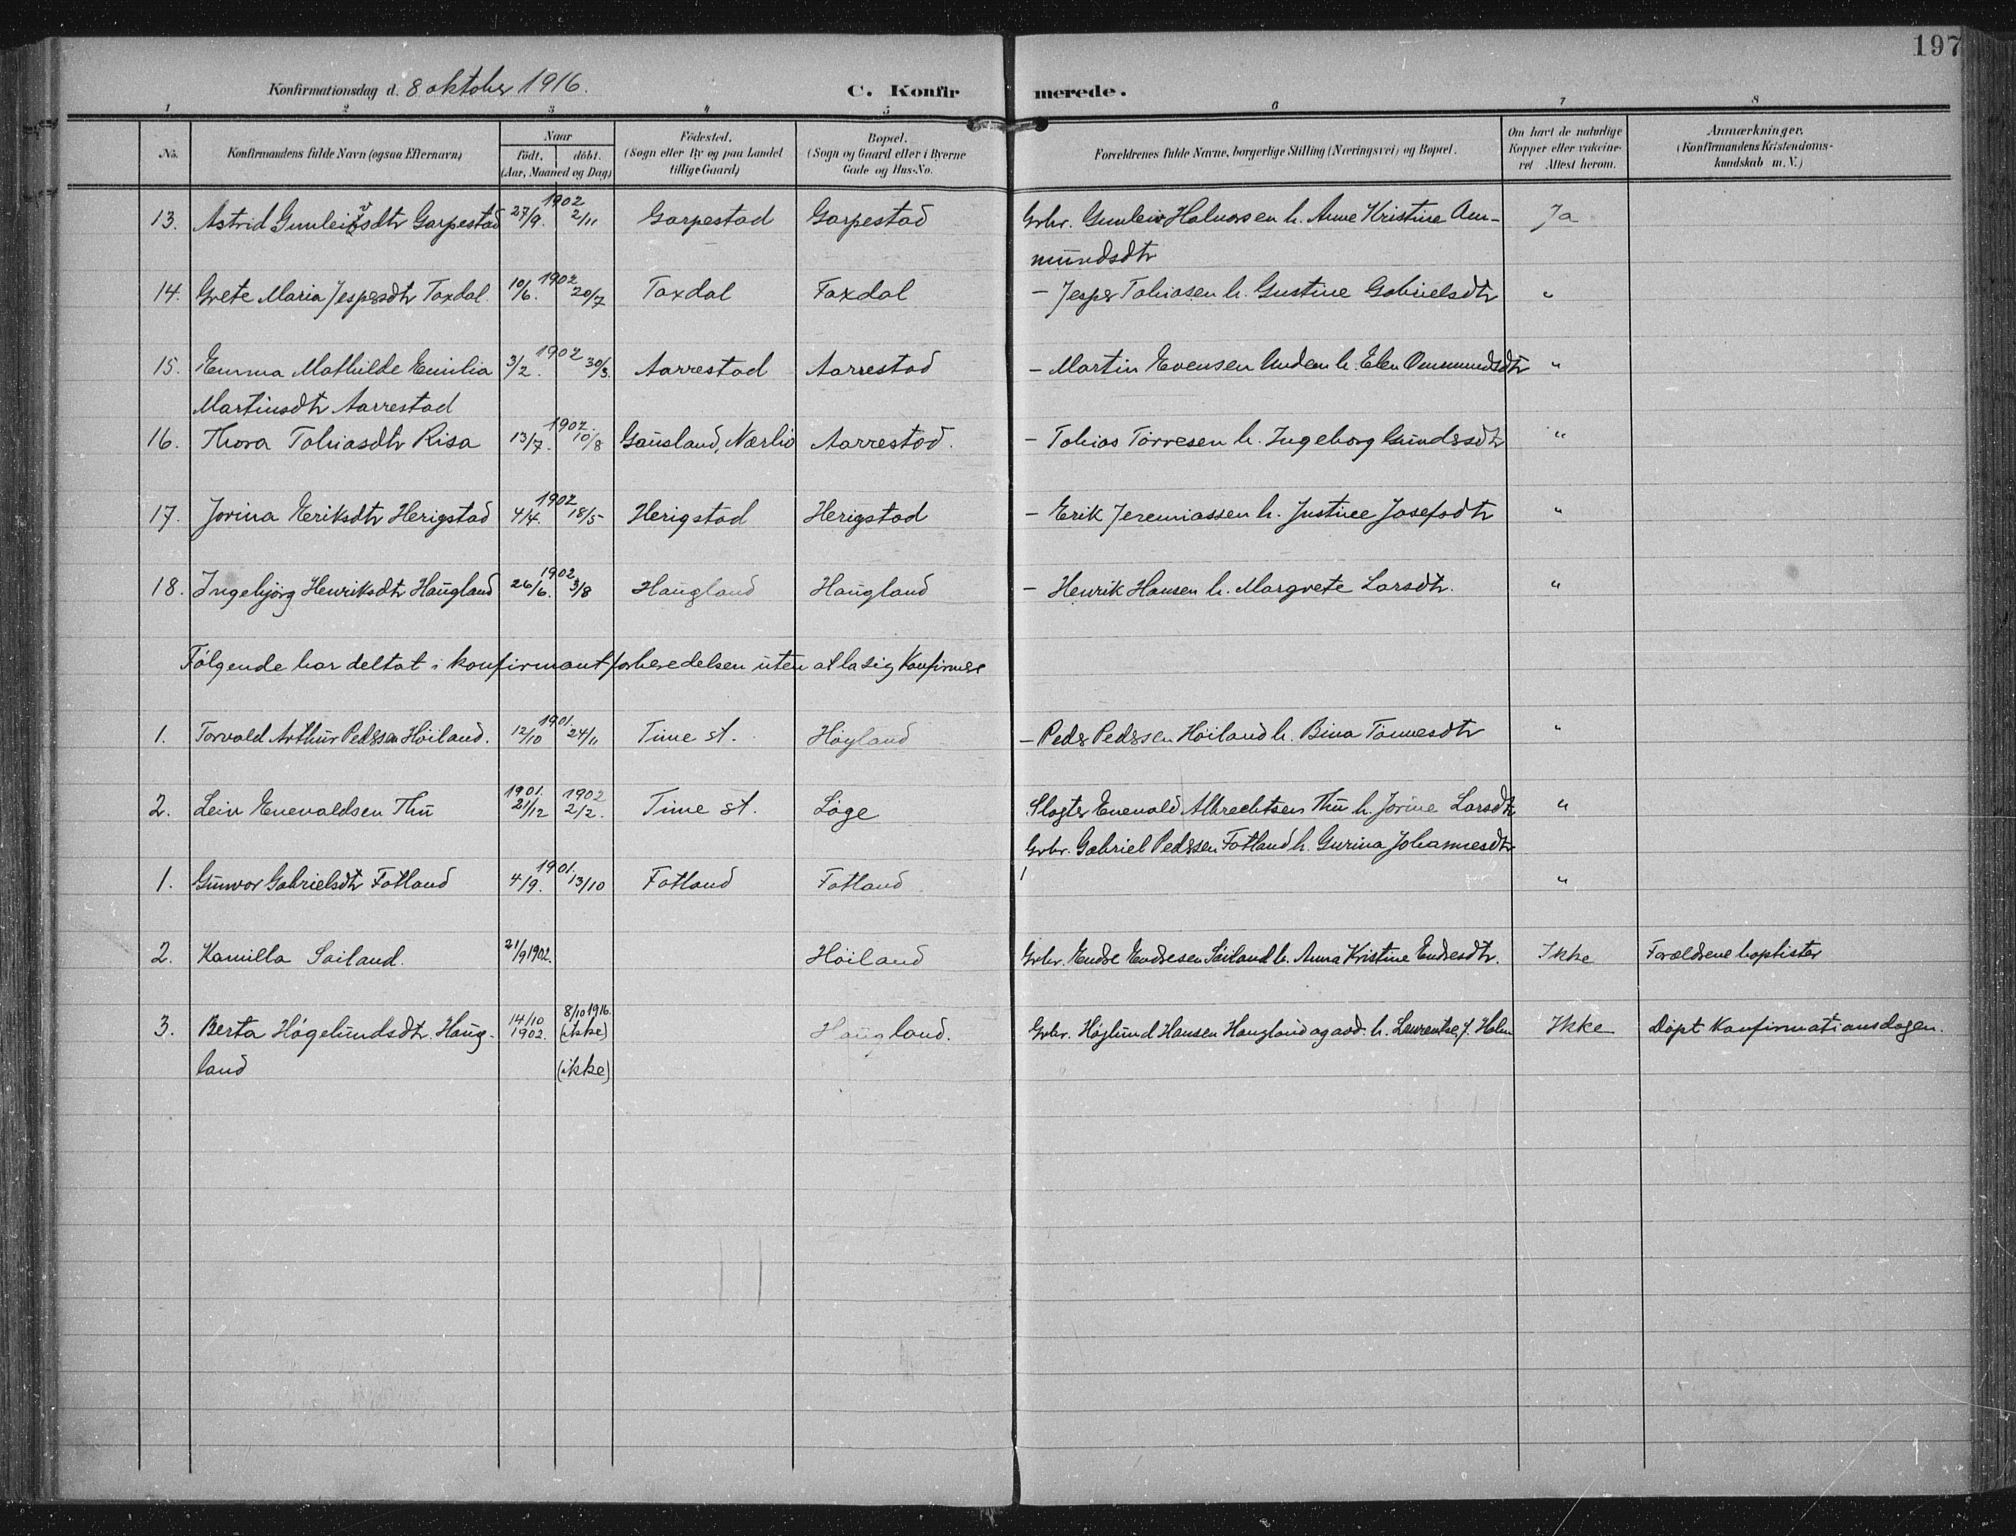 197
Konfirmationsdag d. 8 oktober 1916. C. Konfirmerede.
1 2 3 4 5 6 7 8
No. Konfirmandens fulde Navn (ogsaa Efternavn) Naar født. døbt. (Aar, Maaned og Dag) Fødested. (Sogn eller By og paa Landet tillige Gaard) Bopæl. (Sogn og Gaard eller i Byerne Gade og Hus-No. Forældrenes fulde Navne, borgerlige Stilling (Næringsvei) og Bopæl. Om havt de naturlige Kopper eller vakcineret Attest herom. Anmærkninger. (Konfirmandens Kristendomskundskab m. V.)
13. Astrid Gunleivsdtr Garpestad 27/9. 1902 2/11 Garpestad Garpestad Grbr. Gunleiv Halvorsen h. Anne Kristine Am- Ja
mundsdtr
14. Grete Maria Jespersdtr Taxdal. 10/6. 1902 20/7 Taxdal Taxdal – Jesper Tobiasen h. Gustine Gabrielsdtr "
15. Emma Mathilde Emilia 3/2. 1902 30/3. Aarrestad Aarrestad – Martin Evensen Undem h. Elen Ommundsdtr "
Martinsdtr Aarrestad
16. Thora Tobiasdtr Risa 13/7. 1902. 10/8 Gausland, Nærbø Aarrestad. – Tobias Torresen h. Ingeborg Gundersdtr "
17. Jorina Eriksdtr Herigstad 4/4. 1902 18/5 Herigstad Herigstad – Erik Jeremiassen h. Justine Josefsdtr "
18. Ingebjørg Henriksdtr Haugland 26/6. 1902 3/8 Haugland Haugland – Henrik Hansen h. Margrete Larsdtr. "
Følgende har deltat i konfirmantforberedelsen uten at la sig konfirmere
1. Torvald Arthur Pedersen Høiland. 12/10 1901. 24/11 Time st. Høyland – Peder Pedersen Høiland h. Bina Tønnesdtr "
2. Leiv Enevaldsen Thu 1901. 21/12 1902 2/2. Time st. Løge Slagter Enevald Albrechtsen Thu h. Jorine Larsdtr "
Grbr. Gabriel Pedersen Fotland h. Gurina Johannesdtr
1. Gunvor Gabrielsdtr Fotland 4/9. 1901. 13/10 Fotland Fotland "
2. Kamilla Søiland. 21/9 1902. Høiland Grbr. Endre Endresen Søiland h. Anna Kristine Endresdtr. Ikke Forældrene baptister
3. Berta Høgelundsdtr. Haug- 14/10 1902. 8/10 1916. (ikke) Haugland. Grbr. Høglund Hansen Haugland og avd. h. Laurentse f. Holm Ikke Døpt Konfirmationsdagen.
land (ikke)